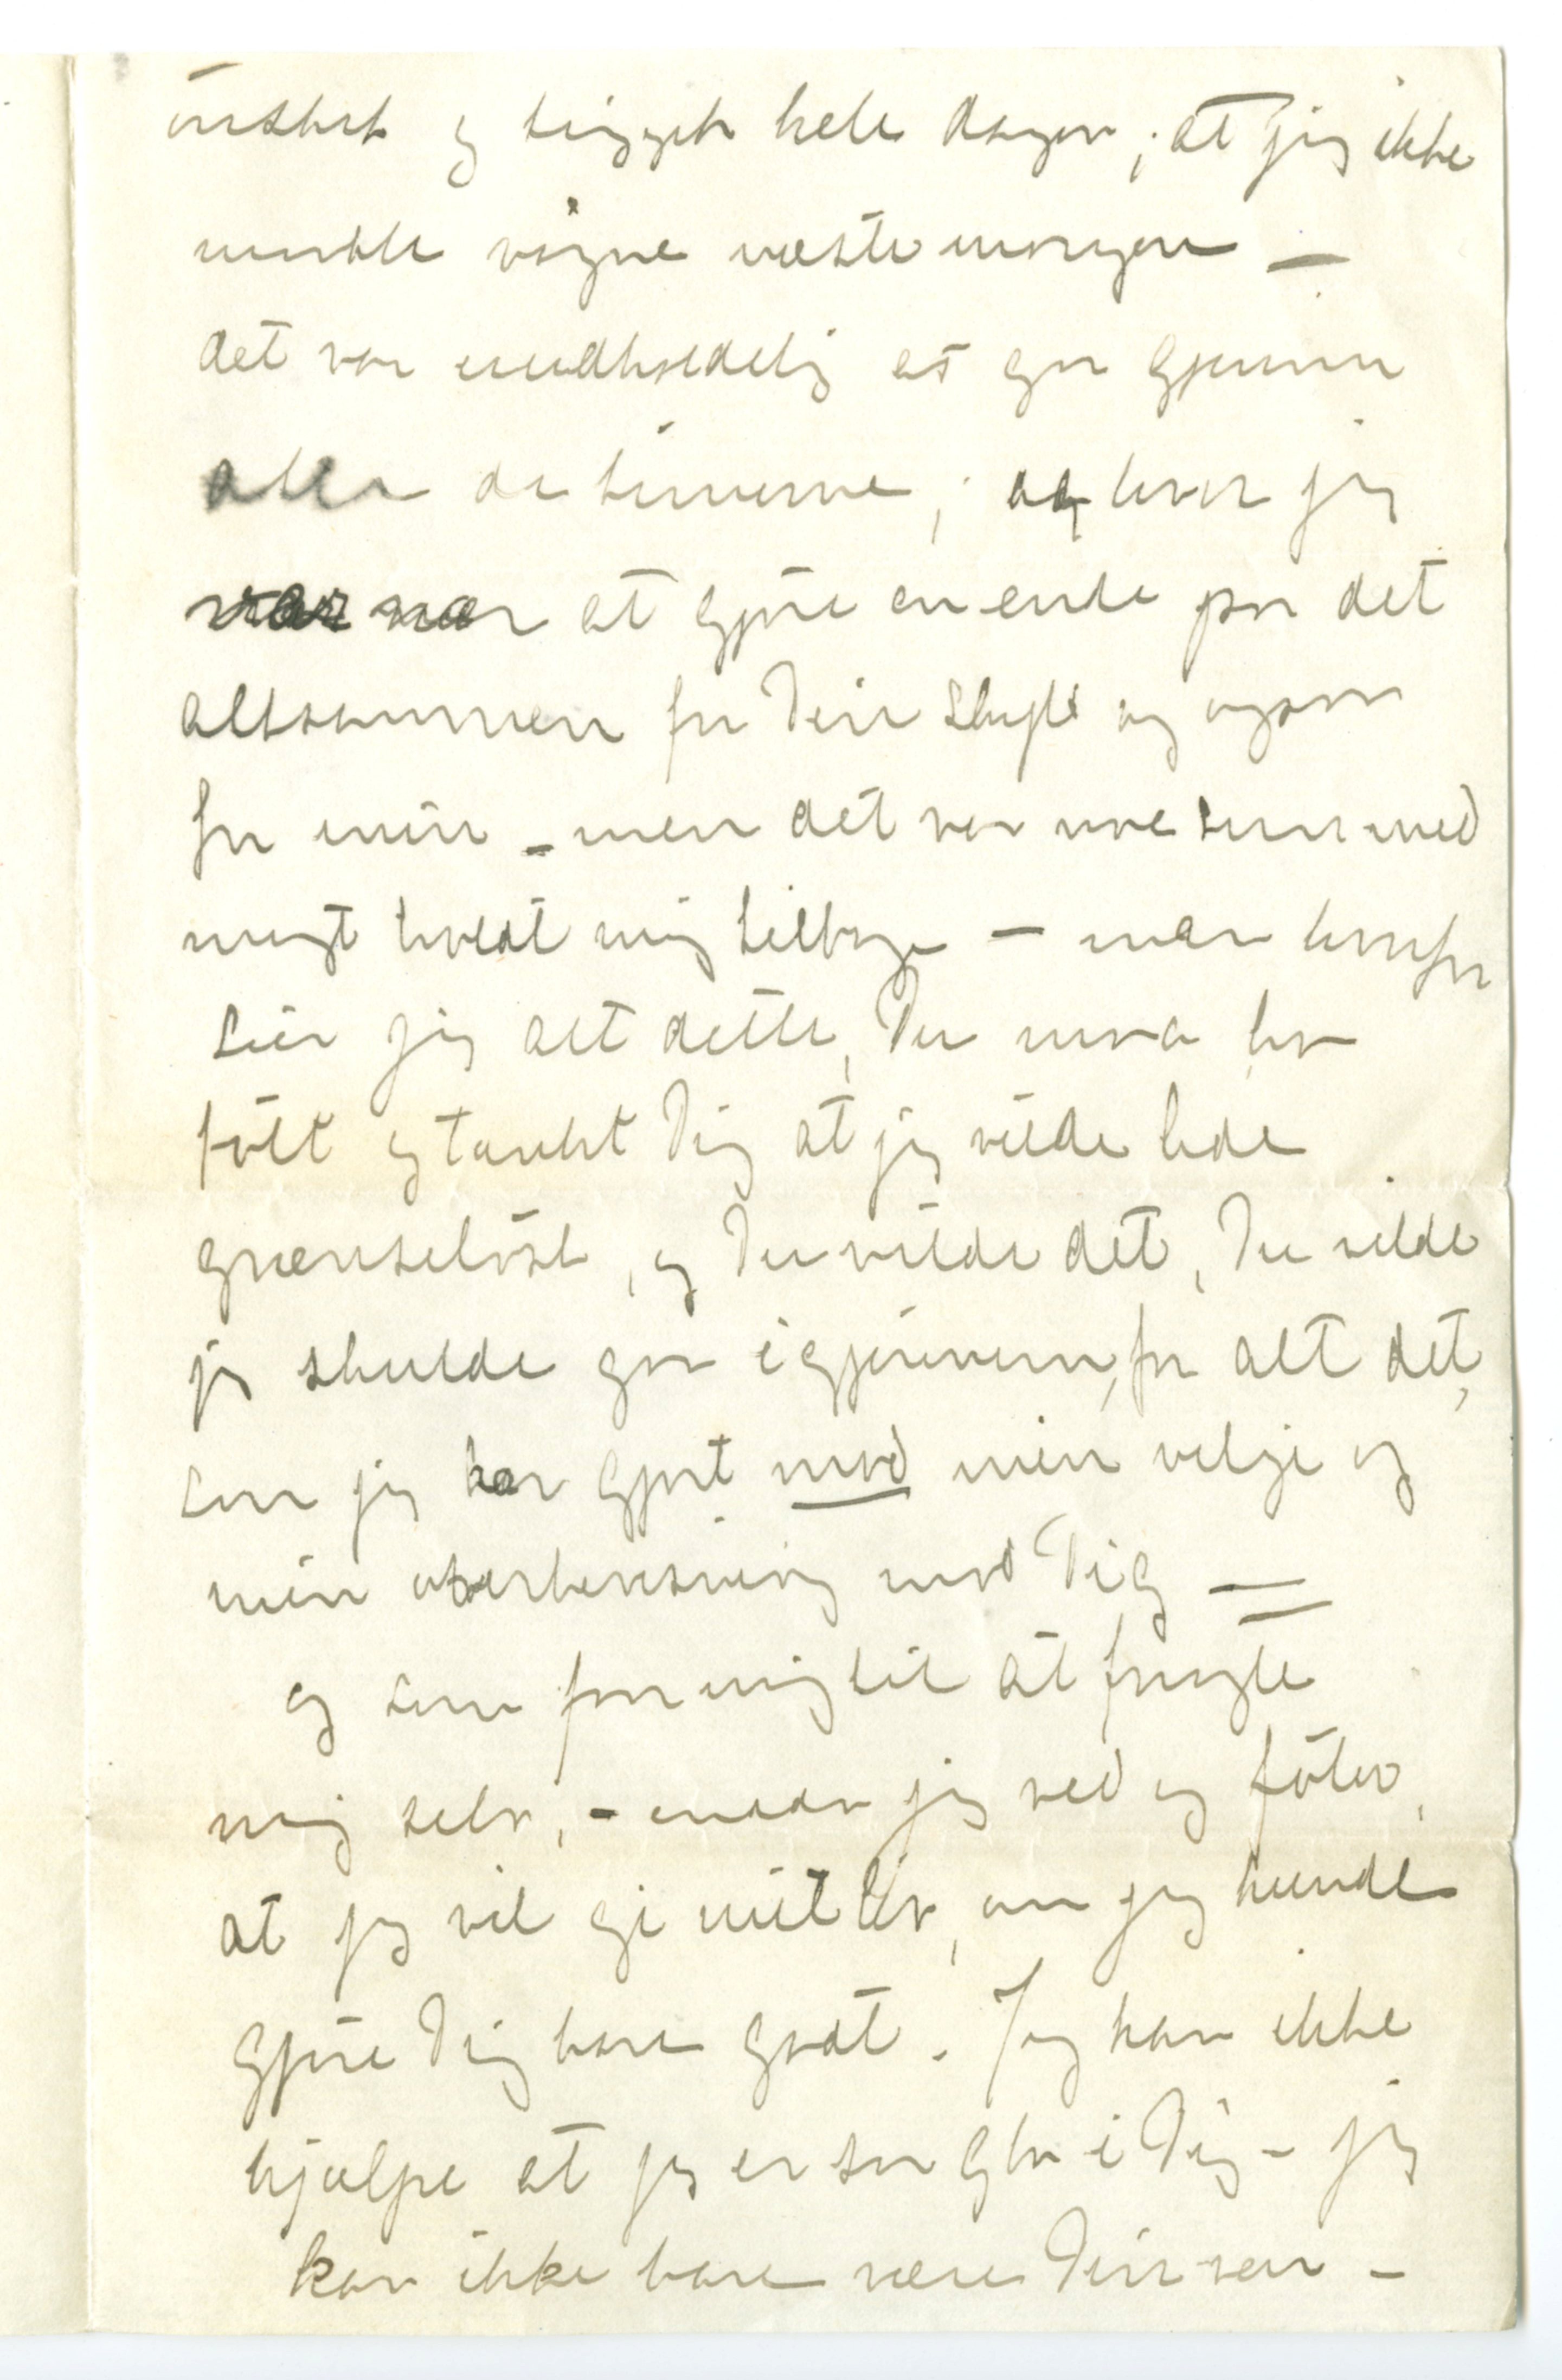 önsket og tigget hele dagen, at jeg ikke
maatte vogne næste morgen —
det var uudholdelig at gaa gjennem
alle de timerne, og hvor jeg
var nær at gjøre en ende paa det
altsammen for Din skyld og ogsaa
for min – men det var noe som med
magt holdt mig tilbage – men hvorfor
sier jeg alt dette, Du maa ha
fölt og tænkt Dig at jeg vilde lide
grænselöst, og Du vilde det, Du vilde
jeg skulde gaa igjennem, for alt det,
som jeg har gjort mod min vilje og
min overbevisning mod Dig —
og som faar mig til at frygte
mig selv, – naar jeg ved og föler,
at jeg vil gi mit liv, om jeg kunde
gjöre Dig bare godt. Jeg kan ikke
hjælpe at jeg er saa gla i Dig – jeg
kan ikke bare være Din ven –